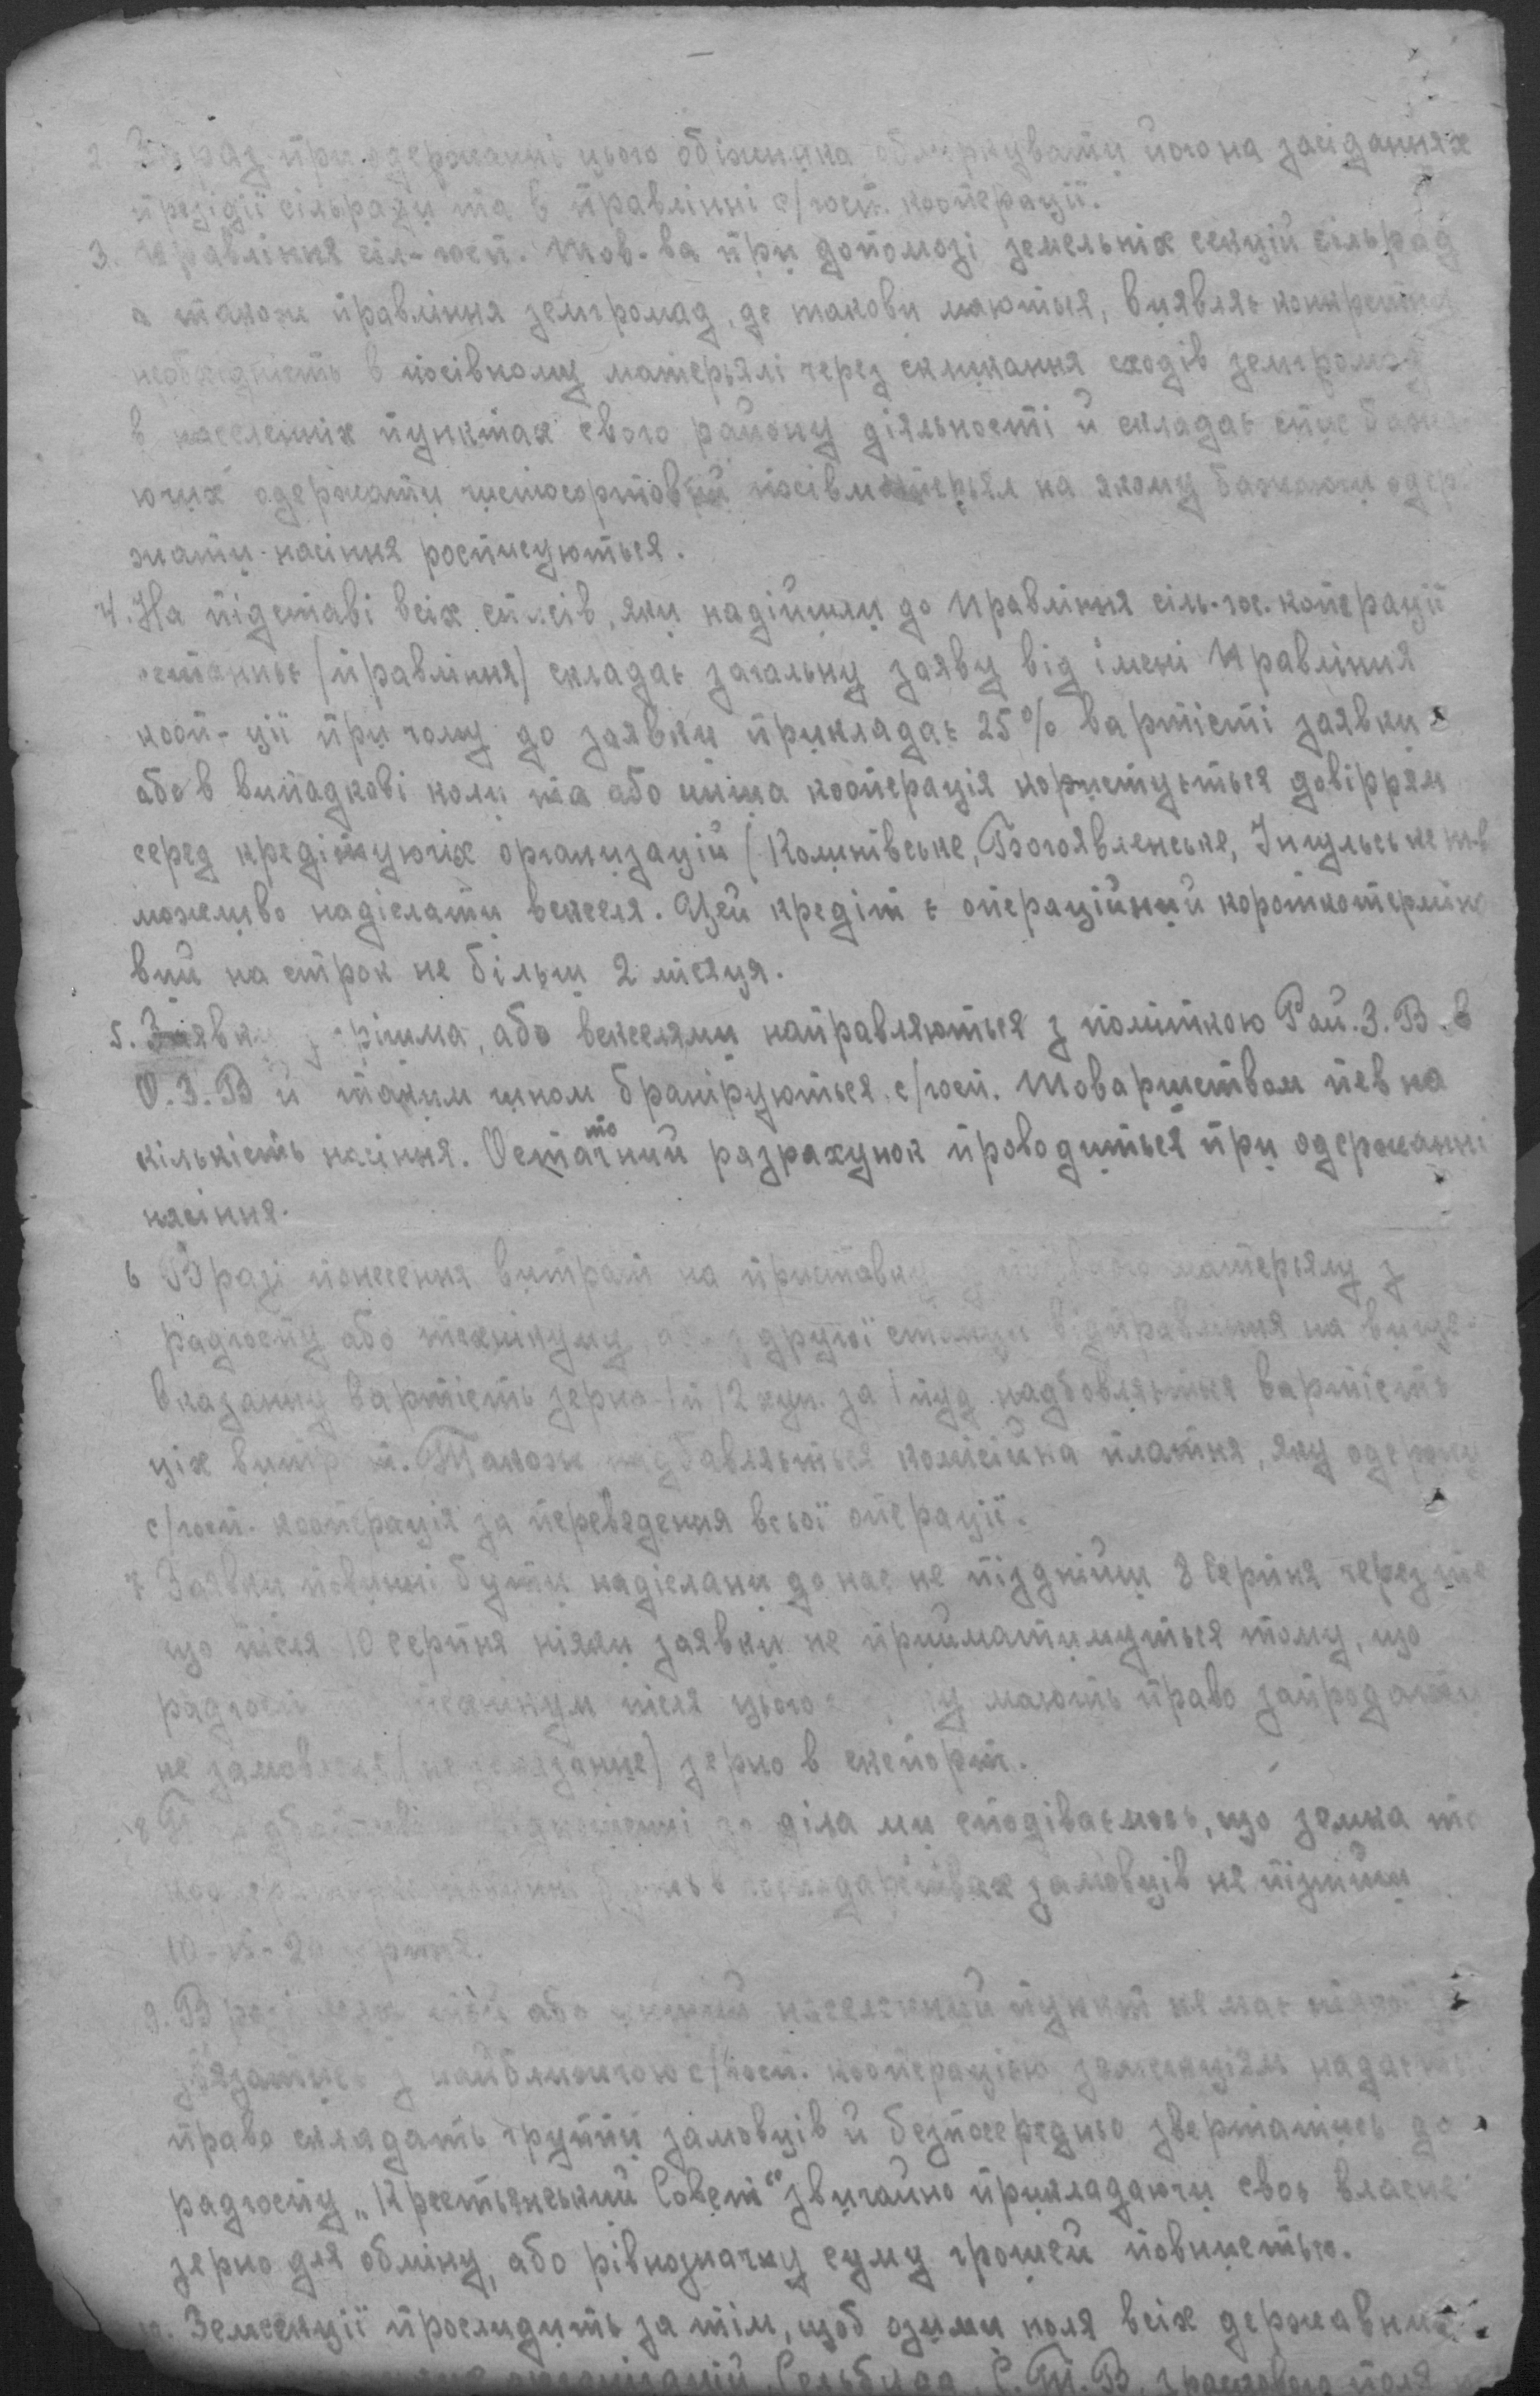 2. Зараз при одержанні цього обіжника обміркувати його на засіданнях
презідії сільради та в правлінні с/госп. кооперації.
3. Правління сіл-госп. Тов-ва при допомозі земельніх секцій сільрад
а також правління земгромад, де такови маються, виявляє конкретну
необхідність в посівному матерьялі через скликання сходів земгромад
в населеніх пунктах свого району діяльності й складає спис бажа
ючих одержати чистосортовий посівматерьял на якому бажаючи одер
жати насіння росписуються.
4. На підставі всіх списів, яки надійшли до Правління сіль-гос. коперації
останнье (правління) складає загальну заяву від імені Правління
кооп-ції при чому до заявки прикладає 25% вартісті заявки
або в випадкові коли та або инша кооперація користується довіррям
серед кредітуючіх організацій (Колинівське, Богоявленське, Інгульське т-в
можливо надіслати векселя. Цей кредіт є операційний короткотерміно
вий на строк не більш 2 місяця.
5. Заявки з грішма, або векселями направляються з поміткою Рай.З.В. в
О.З.В й таким чином браніруються с/госп. Товариством певна
кількість насіння. Остаточний разрахунок проводиться при одержанні
насіння.
6 В разі понесення витрат на приставку матерьялу з
радгоспу або технікуму, або з другої станции відправління на више-
вказанну вартість зерна 1 п 12 куп. за 1 пуд надбовляється вартість
ціх витрат. Також надбавляється комісійна платня, яку одержує
с/госп. кооперація за переведення всьої операції.
7 Заявки повинні бути надіслани до нас не піздніш 8 Серпня через те
що після 10 серпня ніяки заявки не прийматимуться тому, що
радгосп технікум після цього мають право запродати
не замовлене (не указанне) зерно в експорт.
8 діла ми сподіваємось, що земка та
замовців не пізніш
10-15-20 серпня.
9. В разі коли той або инший населений пункт не має ніякої
звязатись з найближчою с/госп. кооперацією земсекціям надається
право складать групи замовців й безпосередньо звертатись до
радгоспу „Крестьянський Совет“ звичайно прикладаючи своє власне
зерно для обміну, або рівнозначну суму грошей повністью.
10. Земсекції прослидить за тім, щоб озими поля всіх державних
організацій, Сельбуда, С.Т.В.